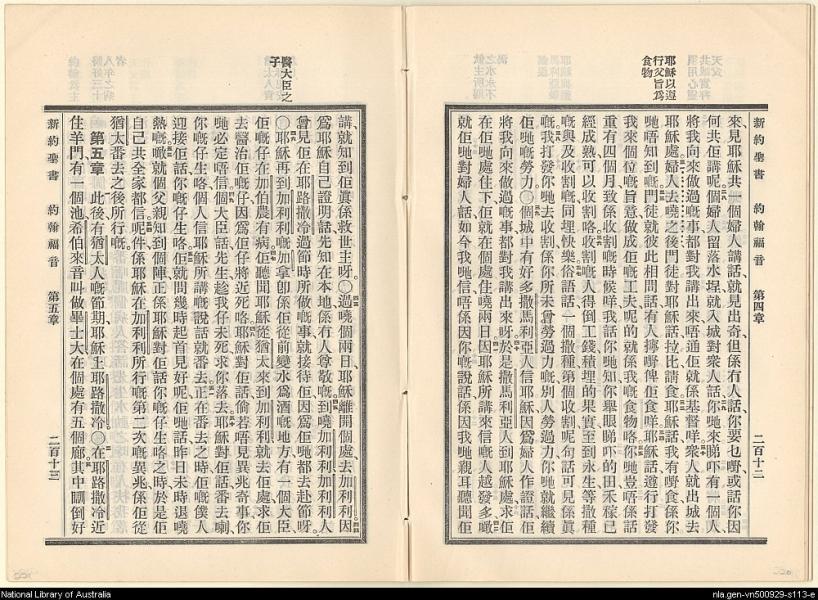 新約聖書 約翰福音 第四章 二百十二
耶穌以遵
行父旨爲
食物
來見耶穌共一個婦人講話就見出奇但係有人話你要乜嘢或話你因
何共佢講呢個婦人留落水埕就入城對衆人話你哋來睇吓有一個人
將我向來做過嘅事都對我講出來唔通佢就係基督咩衆人就出城去
耶穌處婦人去嘵之後門徒對耶穌話拉比請食耶穌話我有嘢食係你
哋唔知到嘅門徒就彼此相問話有人擰嘢俾佢食咩耶穌話遵行打發
我來個位嘅旨意做成佢嘅工夫呢的就係我嘅食物咯你哋豈唔係話
重有四個月致係收割嘅時候咩我話你哋知你舉眼睇吓的田禾稼已
經成熟可以收割咯收割嘅人得倒工錢積埋的果實至到永生等撒種
嘅與及收割嘅同埋快樂俗語話一個撒種第個收割呢句話可見係眞
嘅我打發你哋去收割係你所未曾勞過力嘅別人勞過力你哋就繼續
佢哋嘅勞力〇個城中有好多撒馬利亞人信耶穌因爲婦人作證話佢
將我向來做過嘅事都對我講出來呀於是撒馬利亞人到耶穌處求佢
在佢哋處住下佢就在個處住嘵兩日因耶穌所講來信嘅人越發多噉
就佢哋對婦人話如今我哋信唔係因你嘅說話係因我哋親耳聽聞佢
醫大臣之
子
講就知到佢眞係救世主呀〇過嘵個兩日耶穌離開個處去加利利因
爲耶穌自己證明話先知在本地係冇人尊敬嘅到嘵加利利加利利人
曾見佢在耶路撒冷過節時所做嘅事就接待佢因爲佢哋都去赴節呀
〇耶穌再到加利利嘅加拿卽係佢從前變水爲酒嘅地方有一個大臣
佢嘅仔在加伯農有病佢聽聞耶穌從猶太來到加利利就去佢處求佢
去醫治佢嘅仔因爲佢仔將近死咯耶穌對佢話倘若唔見異兆奇事你
哋必定唔信個大臣話先生趁我仔未死求你落去耶穌對佢話去喇
你嘅仔生咯個人信耶穌所講嘅說話就番去正在番去之時佢嘅僕人
迎接佢話你嘅仔生咯佢就問幾時起首見好呢佢哋話昨日未時退嘵
熱嘅噉就個父親知到個陣正係耶穌對佢話你嘅仔生咯之時於是佢
自己共全家都信呢件係耶穌在加利利所行嘅第二次嘅異兆係佢從
猶太番去之後所行嘅
第五章 此後有猶太人嘅節期耶穌上耶路撒冷〇在耶路撒冷近
住羊門有一個池希伯來音叫做畢士大在個處有五個廊其中瞓倒好
新約聖書 約翰福音 第五章 二百十三
National Library of Australia
nla.gen-vn500929-s113-e